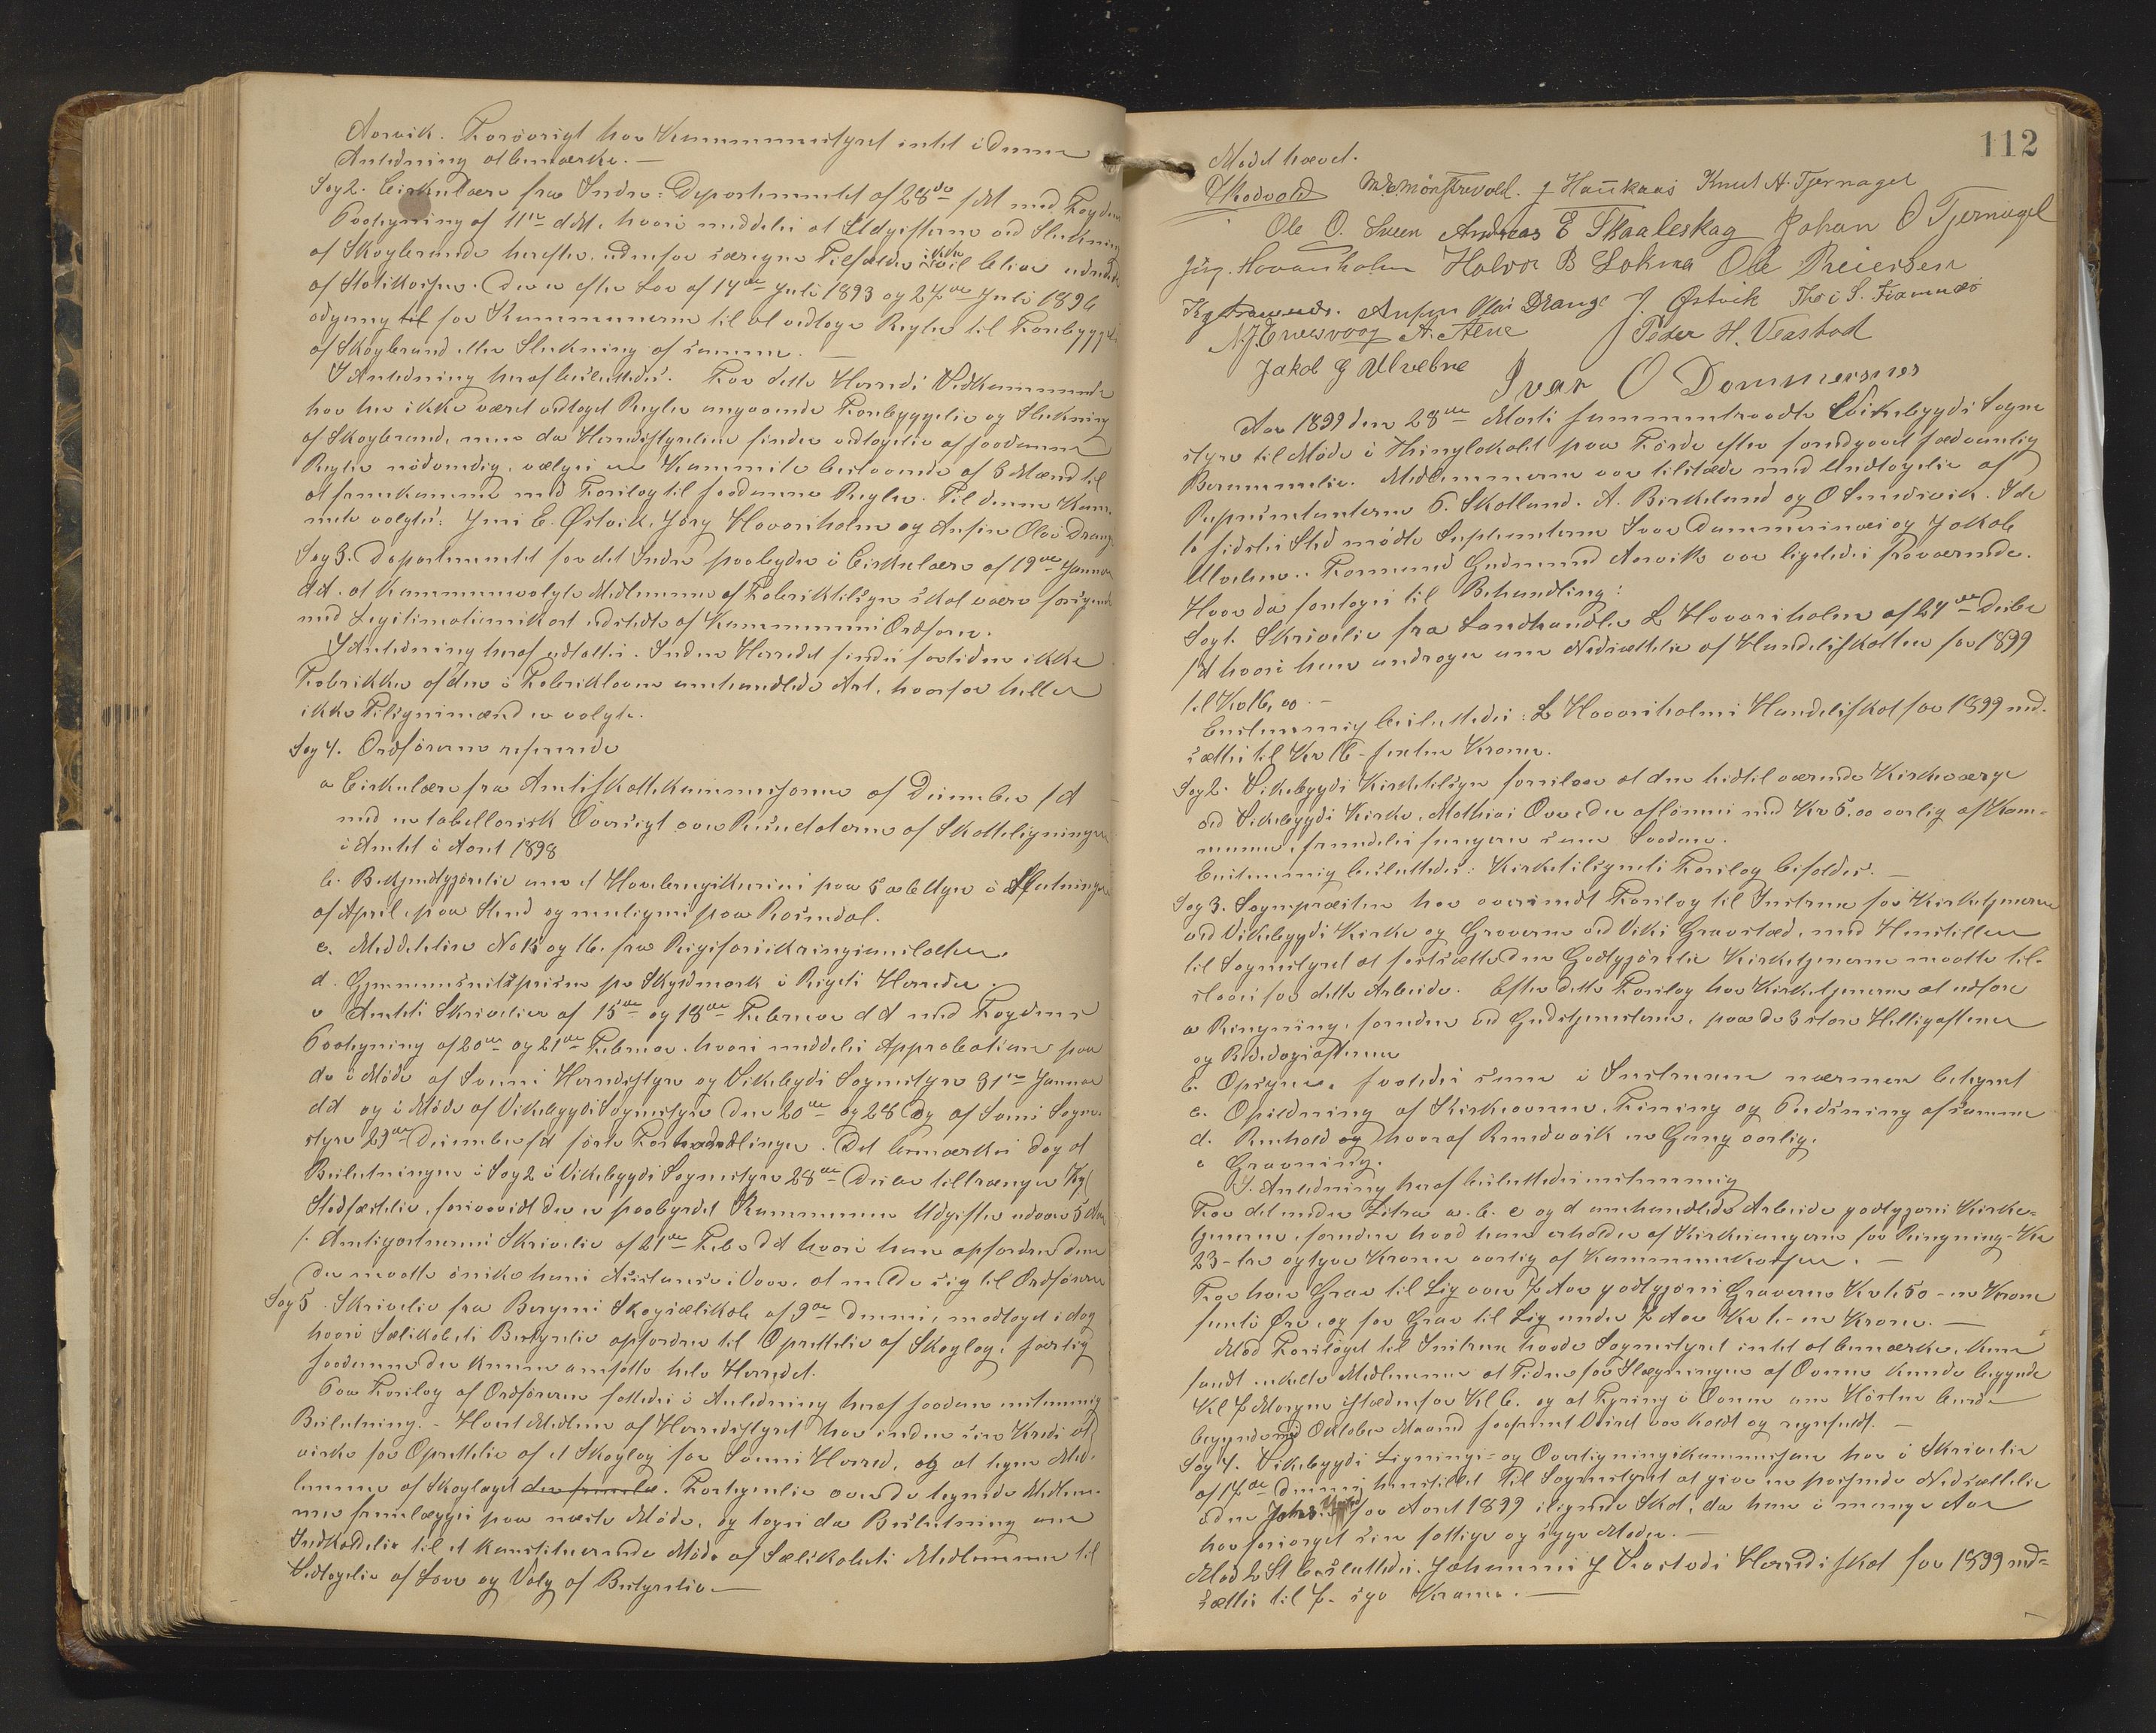 Aarvik. Forøvrigt har Kommunestyret intet i denne
Anledning at bemærke. —
Sag 2. Cirkulære fra Indre-Departementet af 28de f.M. med Fogdens
Paategning af 11te d.M., hvori meddeles at Udgifterne ved Slukning
af Skogbrande herefter, udenfor særegne Tilfælde ikke vil blive udredet
af Statskassen. Der er efter Lov af 14de Juli 1893 og 27de Juli 1896
adgang til for Kommunerne til at vedtage Regler til Forebyggelse
af Skogbrand eller Slukning af samme. —
I Anledning heraf besluttedes: For dette Herreds Vedkommende
har her ikke været vedtaget Regler angaaende Forebyggelse og Slukning
af Skogbrand, men da Herredstyrelsen finder vedtagelse af saadanne
Regler nødvendig, vælges en Kommite bestaaende af 3 Mænd til
at fremkomme med Forslag til saadanne Regler. Til denne Kom-
mite valgtes: Jens E. Østvik, Jørg Hovariholm og Anfin Olai Drange
Sag 3. Departementet for det Indre paabyder i Cirkulære af 19de Januar
d.A. at kommunevalgte Medlemmer af Fabriktilsyn skal være forsynede
med Legitimationskort udstedte af Kommunens Ordfører.
I Anledning heraf udtaltes: Inden Herredet findes for tiden ikke
Fabrikker af den i Fabrikloven omhandlede Art, hvorfor heller
ikke Tilsynsmænd er valgte.
Sag 4. Ordføreren refererede
a Cirkulære fra Amtsskattekommissionen af December f.A
med en tabellarisk Oversigt over Resultaterne af Skatteligningen
i Amtet i Aaret 1898
b. Bekjendtgjørelse om et Havebrugskursus paa 5 a 6 Uger i Slutningen
af April, paa Stend og muligens paa Rosendal.
c. Meddelelse No 15 og 16. fra Rigsforsikringsanstalten.
d. Gjennemsnitspriser pr Skyldmark i Rigets Herreder.
e Amtets Skrivelser af 15de og 18de Februar d.A med Fogdens
Paategning af 20de og 21de Februar. hvori meddeles Approbation paa
de i Møde af Sveens Herredstyre og Vikebygds Sognestyre 31te Januar
d.A og i Møde af Vikebygds Sognestyre den 20de og 28de og af Sveens Sogne-
styre 29de December f.A førte Forhandlinger. Det bemærkes dog at
Beslutningen i Sag 2 i Vikebygds Sognestyre 28de Decbr tiltrænger Kgl
Stadfæstelse, forsaavidt der er paabyrdet Kommunen Udgifter udover 5 Aar
f. Amtsgartnerens Skrivelse af 21de Febr d.A hvori han opfordrer dem
der maatte ønske hans Assistance i Vaar, at melde sig til Ordføreren
Sag 5. Skrivelse fra Bergens Skogselskab af 9de dennes, modtaget idag
hvori Selskabets Bestyrelse opfordrer til Oprettelse af Skoglag, særlig
saadanne der kunne omfatte hele Herredet.
Paa Forslag af Ordføreren fattedes i Anledning heraf saadan enstemmig
Beslutning. – Hvert Medlem af Herredstyret har inden sin Kreds at
virke for Oprettelse af et Skoglag for Sveens Herred, og at tegne Med-
lemmer af Skoglaget. Fortegnelse over de tegnede Medlem-
mer fremlægges paa næste Møde, og tages da Beslutning om
Indkaldelse til et konstituerende Møde af Selskabets Medlemmer til
Vedtagelse af Love og Valg af Bestyrelse. —
112
Mødet hævet.
J Hau̅kaas Knut H. Tjernagel
Ole O. Sveen Andreas E Skaaleskag Johan O Tjernagel
Jørg. Hovariholm Halvor B Lokna Ole Reiersen
Anfin Olai Drange J. Østvik
A. Alne Peder H. Veastad
Jakob G Ulvebne Ivar O Dommersnes
Aar 1899 den 28de Marts sammentraadte Vikebygds Sogne-
styre til Møde i Thinglokalet paa Førde efter foregaaet sædvanlig
Berammelse. Medlemmerne var tilstede med Undtagelse af
Repræsentanterne O. Skotland. A. Birkeland og O Smedsvik. I de
to sidstes Sted mødte Suppleanterne Ivar Dommersnes og Jakob
Ulvebne. Formand Gudmund Aarvik var ligeledes fraværende.
Hvor da foretoges til Behandling:
Sag 1. Skrivelse fra Landhandler L Hovariholm af 24de Decbr
f.A hvori han androger om Nedsættelse af Handelsskatten for 1899
til Kr 16,00. —
Enstemmig besluttedes: L Hovariholms Handelsskat for 1899 ned-
sættes til Kr 16 – sexten Kroner.
Sag 2. Vikebygds Kirketilsyn foreslaar at den hidtil værende Kirkeværge
ved Vikebygds Kirke, Mathias Ovre der aflønnes med Kr 5.00 aarlig af Kom-
munen, fremdeles fungerer som Saadan.
Enstemmig besluttedes: Kirketilsynets Forslag bifaldes. —
Sag 3. Sognepræsten har oversendt Forslag til Instrux for Kirketjeneren
ved Vikebygds Kirke og Graveren ved Viks Gravsted, med Henstillen
til Sognestyret at fastsætte den Godtgjørelse Kirketjeneren maatte til-
staaes for dette Arbeide. Efter dette Forslag har Kirketjeneren at udføre
a Ringning, foruden ved Gudstjenesterne, paa de 3 store Helligaftener
og Bededagsaftenen
b. Opsynet, saaledes som i Instruxen nærmere betegnet
c. Opildning af Kirkeovnen, Feining og Pudsning af samme
d. Renhold og hvoraf Rundvask en Gang aarlig.
e Gravning.
I Anledning heraf besluttedes enstemmig
For det under Litra a. b. c og d omhandlede Arbeide godtgjøres Kirke-
tjeneren, foruden hvad han erholder af Kirkeangerne for Ringning – Kr
23 – tre og tyve Kroner aarlig af Kommunekassen. —
For hver Grav til Lig over 7 Aar godtgjøres Graveren Kr 1.50 – en Krone
femti Øre, og for Grav til Lig under 7 Aar Kr 1. – en Krone. —
Mod Forslaget til Instrux havde Sognestyret intet at bemærke, kun
fandt enkelte Medlemmer at Tiden for Ilægningen af Ovnen kunde begynde
Kl 7 Morgen istedenfor Kl 6. og at Fyring i Ovnen om Høsten burde
begynde med Oktober Maaned saafremt Veiret var koldt og regnfuldt. —
Sag 4. Vikebygds Lignings- og Overligningskommission har i Skrivelse
af 17de dennes henstillet til Sognestyret at give en passende Nedsættelse
i den for Aaret 1899 ilignede Skat, da han i mange Aar
har forsørget sin fattige og syge Moder. —
Mod 2 St besluttedes: Johannes J Veastads Herredsskat for 1899 ned-
sættes til 7 – syv Kroner. —